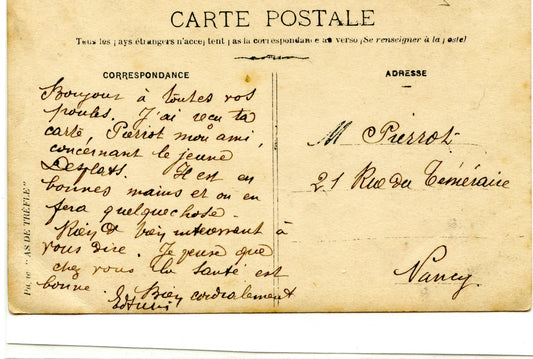 CARTE POSTALE
Tous les pays étrangers n'acceptent pas la correspondance au verso (Se renseigner à la poste)
CORRESPONDANCE
Bonjour à toutes vos
poules. J'ai reçu ta
carte, Pierrot mon ami,
concernant le jeune
Il est en
bonnes mains et on en
fera quelquechose.
Rien bien interessant à
vous dire. Je pense que
chez vous la santé est
bonne. Bien cordialement
ADRESSE
M Pierrot
21 Rue du Téméraire
Nancy
"AS DE TRÈFLE"